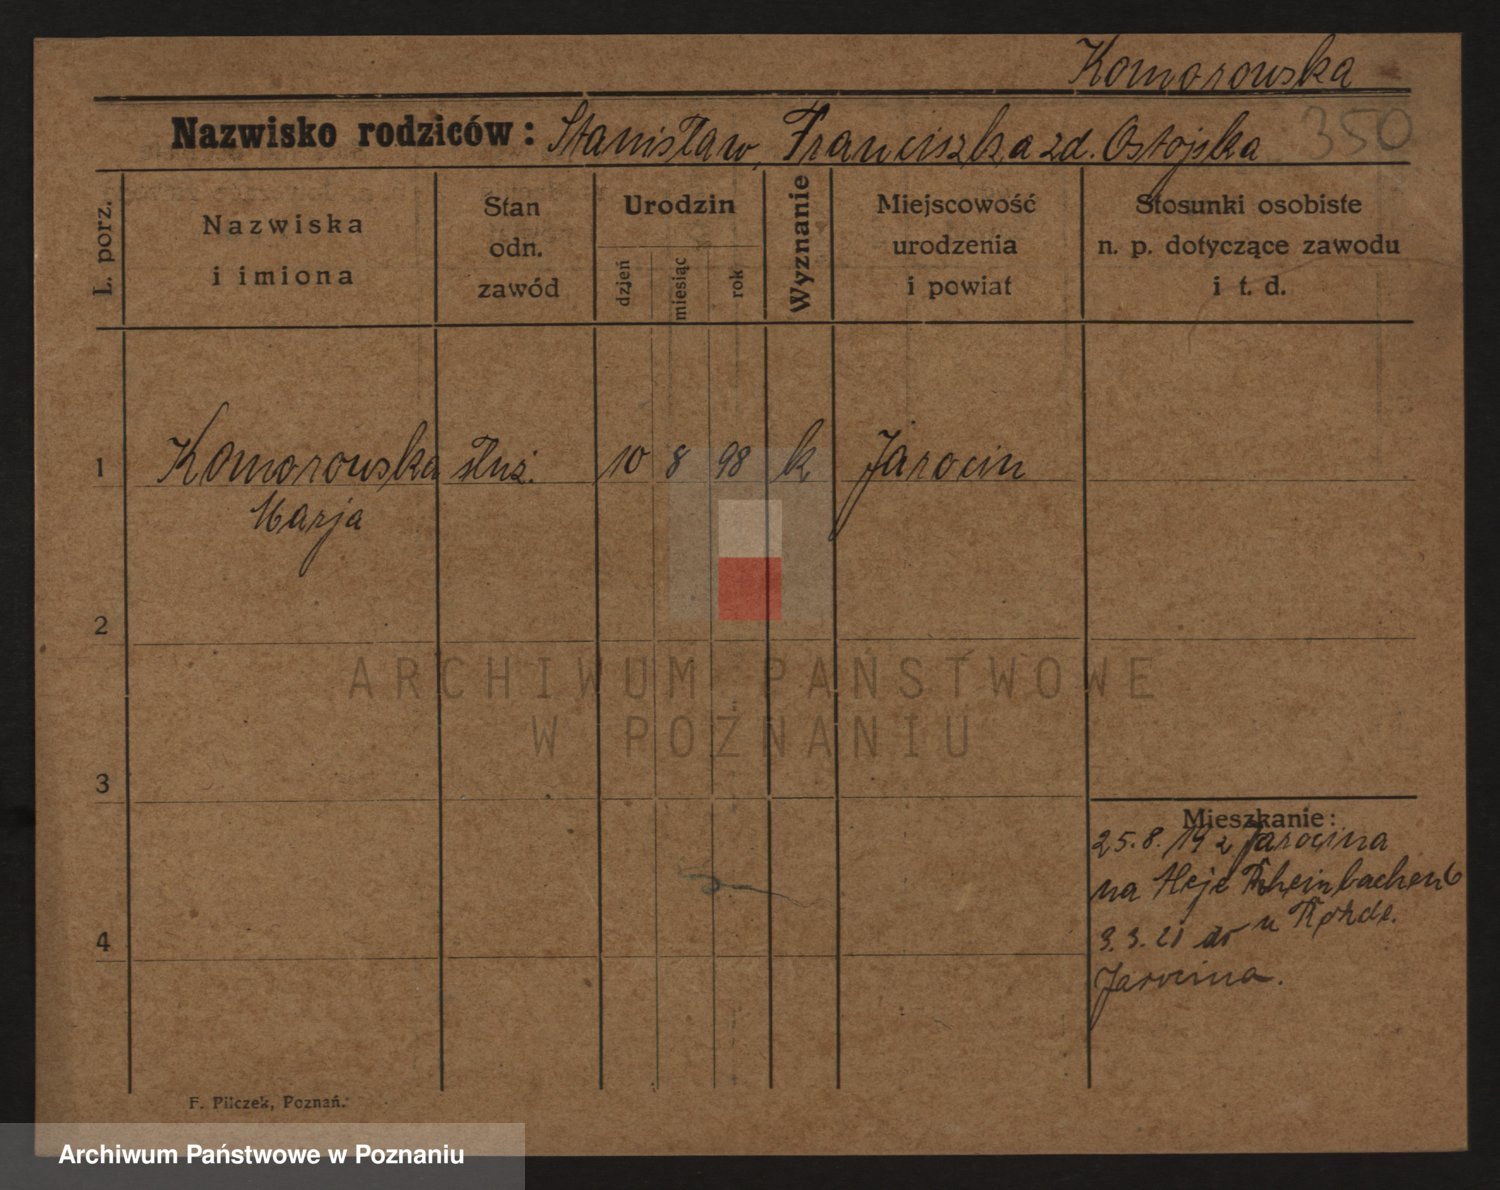 Komorowska
Nazwisko rodziców: Stanisław, Franciszka zd. Ostojska 350
L. porz.
Nazwiska
i imiona
Stan
odn.
zawód
Urodzin
dzień
miesiąc
rok
Wyznanie
Miejscowość
urodzenia
i powiat
Stosunki osobiste
n. p. dotyczące zawodu
i t. d.
1 Komorowska służ. 10 8 98 k Jarocin
Marja
2
3
4
Mieszkanie:
25.8.19 z Jarocina
na
u
3.3.21 do
Jarocina.
F. Pilczek, Poznań.
ARCHIWUM PAŃSTWOWE
W POZNANIU
Archiwum Państwowe w Poznaniu